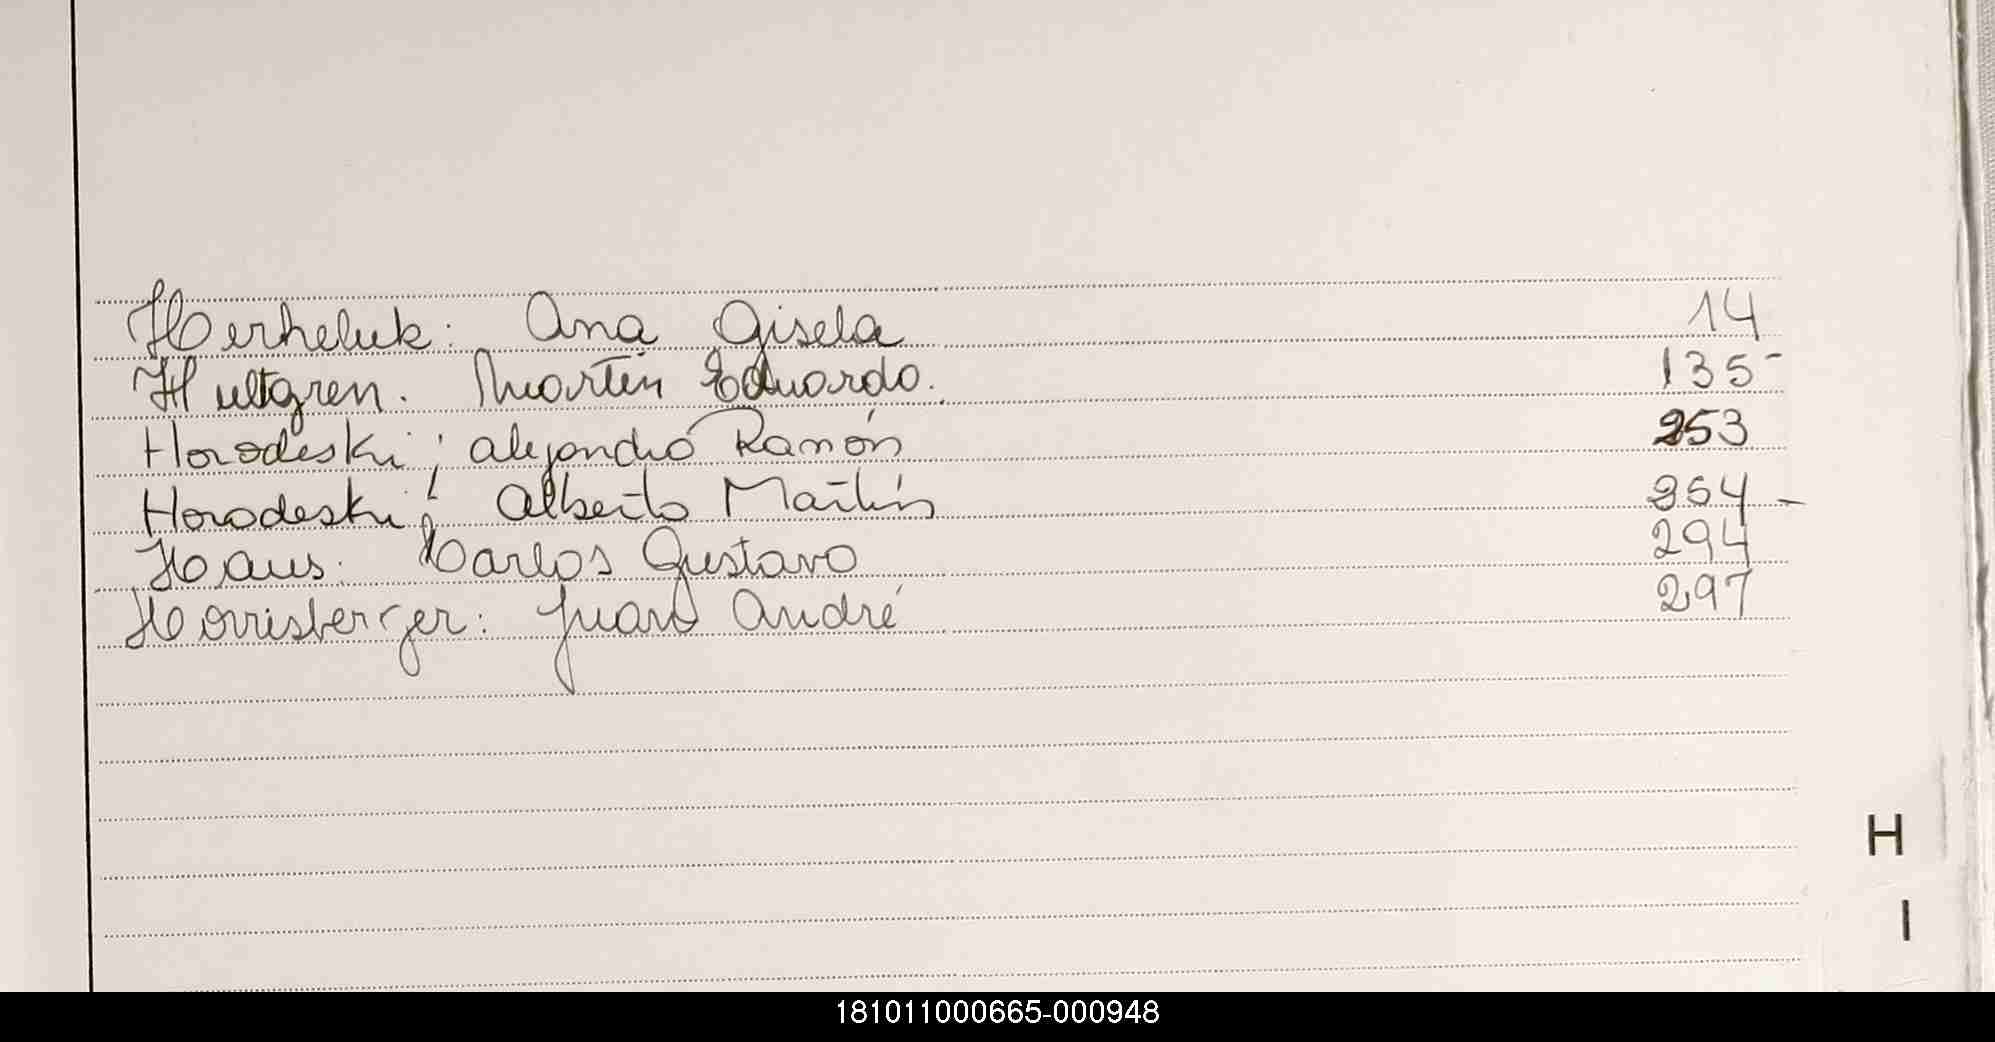 Herheluk: Ana Gisela 14
Hultgren. Martin Eduardo. 135-
Horodeski; Alejandro Ramón 253
Horodeski; Alberto Martín 254-
Haus. Carlos Gustavo 294
Horrisberger: Juan André 297
H
I
181011000665-000948